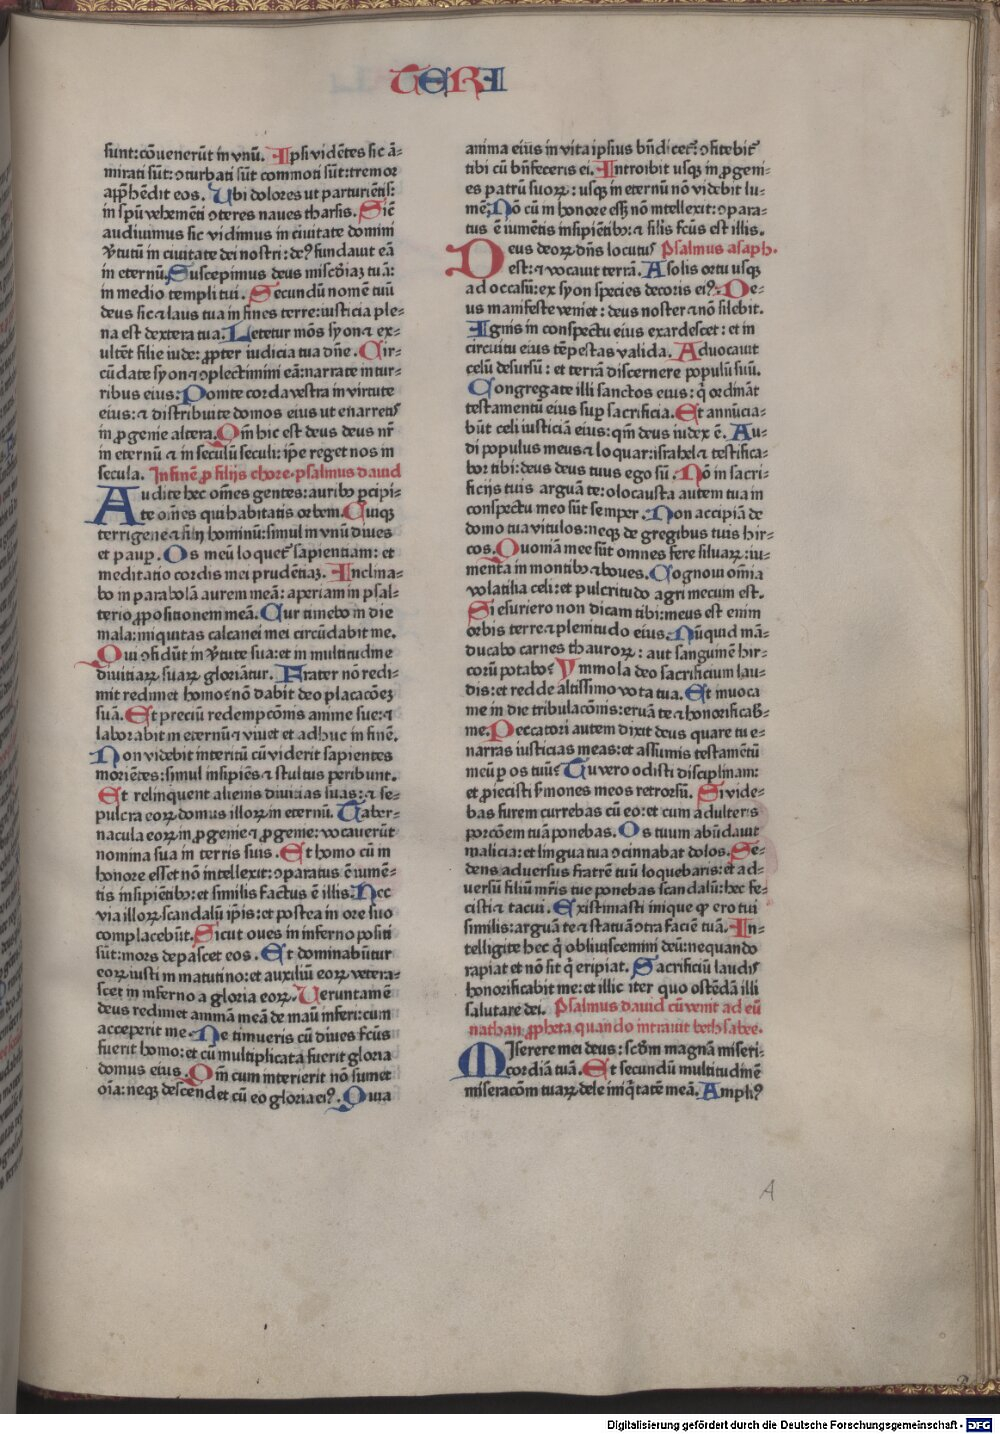 TERI
sunt: cōuenerūt in vnū. Ipsi vidētes sic ā-
mirati sūt: ꝯturbati sūt commoti sūt: tremor
apꝑhēdit eos. Vbi dolores ut parturiētis:
in spū vehemēti ꝯteres naues tharsis. Sic̄
audiuimus sic vidimus in ciuitate domini
v̓tutū in ciuitate dei nostri: deꝰ fundauit eā
in eternū. Suscepimus deus miscd̓iaꝫ tuā:
in medio templi tui. Secundū nomē tuū
deus sic ⁊ laus tua in fines terre: iusticia ple-
na est dextera tua. Letetur mōs syon ⁊ ex-
ultēt filie iude: ꝓpter iudicia tua dn̄e. Cir-
cūdate syon ⁊ ꝯplectimini eā: narrate in tur-
ribus eius: Ponite corda vestra in virtute
eius: ⁊ distribuite domos eius ut enarretis
in ꝓgenie altera. Qm̄ hic est deus deus nr̄
in eternū ⁊ in seculū seculi: ip̄e reget nos in
secula. In finē ꝓ filijs chore. psalmus dauid
Audite hec om̄es gentes: auribꝰ ꝑcipi-
te om̄es qui habitatis orbem. Cuiqꝫ
terrigene ⁊ filij hominū: simul in vnū diues
et pauꝑ. Os meū loquet̄ sapientiam: et
meditatio cordis mei prudētiaꝫ. Inclina-
bo in parabolā aurem meā: aperiam in psal-
terio ꝓpositionem meā. Cur timebo in die
mala: iniquitas calcanei mei circūdabit me.
Qui ꝯfidūt in v̓tute sua: et in multitudine
diuitiaꝝ suaꝝ gloriātur. Frater nō redi-
mit redimet homo: nō dabit deo placacōeꝫ
suā. Et preciū redempcōnis anime sue: ⁊
laborabit in eternū ⁊ viuet et adhuc in finē.
Non videbit interitū cū viderit sapientes
moriētes: simul insipiēs ⁊ stultus peribunt.
Et relinquent alienis diuitias suas: ⁊ se-
pulcra eoꝝ domus illoꝝ in eternū. Taber-
nacula eoꝝ in ꝓgenie ⁊ ꝓgenie: vocauerūt
nomina sua in terris suis. Et homo cū in
honore esset nō intellexit: ꝯparatus ē iumē-
tis insipiētibꝰ: et similis factus ē illis. Nec
via illoꝝ scandalū ip̄is: et postea in ore suo
complacebūt. Sicut oues in inferno positi
sūt: mors depascet eos. Et dominabūtur
eoꝝ iusti in matutino: et auxiliū eoꝝ vetera-
scet in inferno a gloria eoꝝ. Veruntamē
deus redimet animā meā de manū inferi: cum
acceperit me. Ne timueris cū diues fc̄us
fuerit homo: et cū multiplicata fuerit gloria
domus eius. Qm̄ cum interierit nō sumet
oīa: neqꝫ descendet cū eo gloria eiꝰ. Quia
anima eius in vita ipsius bn̄dicet̄: ꝯfitebit̄
tibi cū bn̄feceris ei. Introibit usqꝫ in ꝓgeni-
es patrū suoꝝ: usqꝫ in eternū nō videbit lu-
mē. Nō cū in honore esset nō intellexit: ꝯpara-
tus ē iumētis insipiētibꝰ: ⁊ silis fcūs est illis.
Deus deoꝝ dn̄s locutus Psalmus asaph.
est: ⁊ vocauit terrā. A solis ortu usqꝫ
ad occasū: ex syon species decoris eiꝰ. De-
us manifeste veniet: deus noster ⁊ nō silebit.
Ignis in conspectu eius exardescet: et in
circuitu eius tēpestas valida. Aduocauit
celū desursū: et terrā discernere populū suū.
Congregate illi sanctos eius: q̇ ordināt
testamentū eius suꝑ sacrificia. Et annūcia-
būt celi iusticiā eius: qm̄ deus iudex ē. Au-
di populus meus ⁊ loquar: israhel ⁊ testifica-
bor tibi: deus deus tuus ego sū. Nō in sacri-
ficijs tuis arguā te: olocausta autem tua in
conspectu meo sūt semper. Non accipiā de
domo tua vitulos: neqꝫ de gregibus tuis hir-
cos. Quoniā mee sūt omnes fere siluaꝝ: iu-
menta in montibꝰ ⁊ boues. Cognoui om̄ia
volatilia celi: et pulcritudo agri mecum est.
Si esuriero non dicam tibi: meus est enim
orbis terre ⁊ plenitudo eius. Nūquid mā-
ducabo carnes thauroꝝ: aut sanguinē hir-
corū potabo: Ymmola deo sacrificium lau-
dis: et redde altissimo vota tua. Et inuoca
me in die tribulacōnis: eruā te ⁊ honorificab̄-
me. Peccatori autem dixit deus quare tu e-
narras iusticias meas: et assumis testamētū
meū ꝑ os tuū: Tu vero odisti disciplinam:
et ꝓiecisti s̓mones meos retrorsū. Si vide-
bas furem currebas cū eo: et cum adulteris
porcōem tuā ponebas. Os tuum abūdauit
malicia: et lingua tua ꝯcinnabat dolos. Se-
dens aduersus fratrē tuū loquebaris: et ad-
uersū filiū mr̄is tue ponebas scandalū: hec fe-
cisti ⁊ tacui. Existimasti inique ꝙ ero tui
similis: arguā te ⁊ statuā ꝯtra faciē tuā. In-
telligite hec q̇ obliuiscemini deū: nequando
rapiat et nō sit q̇ eripiat. Sacrificiū laudis
honorificabit me: et illic iter quo ostēdā illi
salutare dei. Psalmus dauid cū venit ad eū
nathan ꝓpheta quando intrauit bethsabee.
Miserere mei deus: scd̄m magnā miseri-
cordiā tuā. Et secundū multitudinē
miseracōm tuaꝝ dele iniq̇tatē meā. Ampliꝰ
A
Digitalisierung gefördert durch die Deutsche Forschungsgemeinschaft - DFG